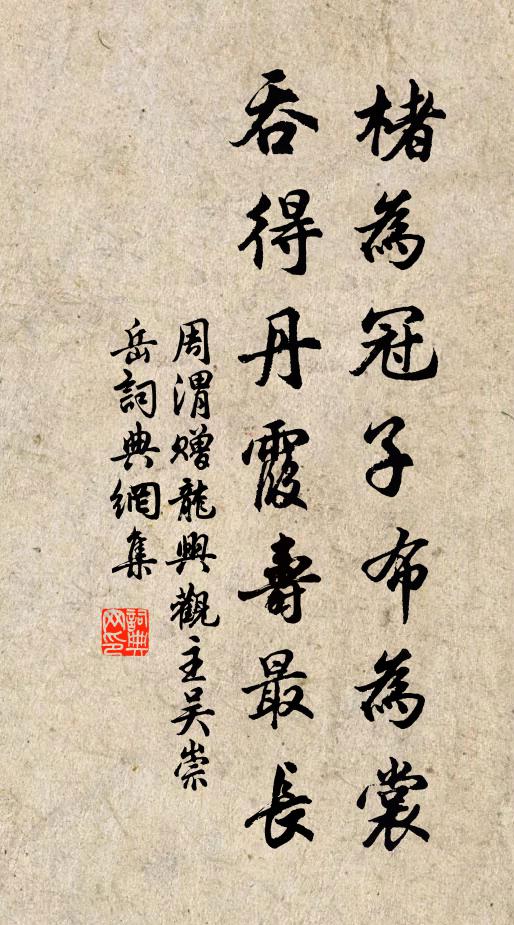 楮為冠子布為裳
吞得丹霞壽最長
周渭贈龍興觀主吳崇
岳詞典網集
詞典
网印